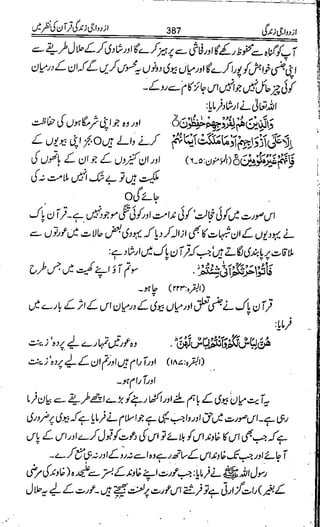 ازدواجی زندگی 387 ازدواجی زندگی قرآن کی نظر میں
آپ کو گناہ سے محفوظ رکھے گا اور فحاشی سے پرہیز کرے گا اور شادی کر کے حلال طریقے سے
اپنی جنسی خواہش کو پورا کرے گا اور میاں بیوی دونوں یہ محسوس کریں گے کہ ان کے درمیان
کوئی چیز حائل نہیں جو انہیں اس جائز کام سے روکے۔
اللہ تعالیٰ نے ارشاد فرمایا:
وَالَّذِينَ هُمْ لِفُرُوجِهِمْ حَفِظُونَ اور وہ جو اپنی شرمگاہوں کی حفاظت
إِلَّا عَلَى أَزْوَاجِهِمْ أَوْ مَا مَلَكَتْ أَيْمَانُهُمْ کرنے والے ہیں O بجز اپنی بیویوں کے
فَإِنَّهُمْ غَيْرُ مَلُومِينَ (المؤمنون: ۵۔۶) اور ان کنیزوں کے جو ان کے ہاتھوں کی
ملکیت ہیں تو بے شک انہیں ملامت نہ کی
جائے گی O
اس صورت میں کوئی خجالت، کوئی ندامت اور کوئی تنگی موجود نہیں ہے۔ قرآن پاک
نے یہودیوں کے ان شبہات کا بھی ازالہ کر دیا کہ یہودی بعض حالات میں عورتوں سے
ملاقات پر پابندی لگاتے ہیں جب کہ قرآن پاک میں ارشاد ہے:
فَأْتُوا حَرْثَكُمْ أَنَّى شِئْتُمْ. سو تم آؤ اپنے کھیت میں جس طرح
(البقرہ: ۲۲۳) چاہو۔
قرآن پاک نے جنسی تعلق اور میاں بیوی کے درمیان اس کے اثر کے بارے میں
فرمایا:
هُنَّ لِبَاسٌ لَّكُمْ وَأَنْتُمْ لِبَاسٌ لَّهُنَّ. وہ عورتیں تمہارے لیے پردہ، زینت
(البقرہ: ۱۸۷) اور آرام ہیں اور تم ان کے لیے پردہ، زینت
اور آرام ہو۔
یہ آیت میاں بیوی کے باہم ملنے اور اکٹھا رہنے کو بڑے اچھے طریقے سے بیان فرما
رہی ہے۔ اس صورت میں حق اور واجب یہی ہے جو اسلام نے فرمایا ہے کہ بیوی پر ضروری
ہے کہ جب بھی اس کا خاوند اس کو بلائے تو اس کی دعوت کو قبول کرے اور اس کے پاس
آ جائے اور جب تک خاوند اس کے ساتھ رہے وہ اسے نہ روکے اور نہ ہی منع کرے۔
رسول اللہ ﷺ نے فرمایا: جب عورت اپنے خاوند کے بستر سے علیحدہ (خاوند کی مرضی
کے بغیر) رات گزارتی ہے تو فرشتے اس عورت پر لعنت بھیجتے ہیں۔ عورت کے لیے یہ حلال